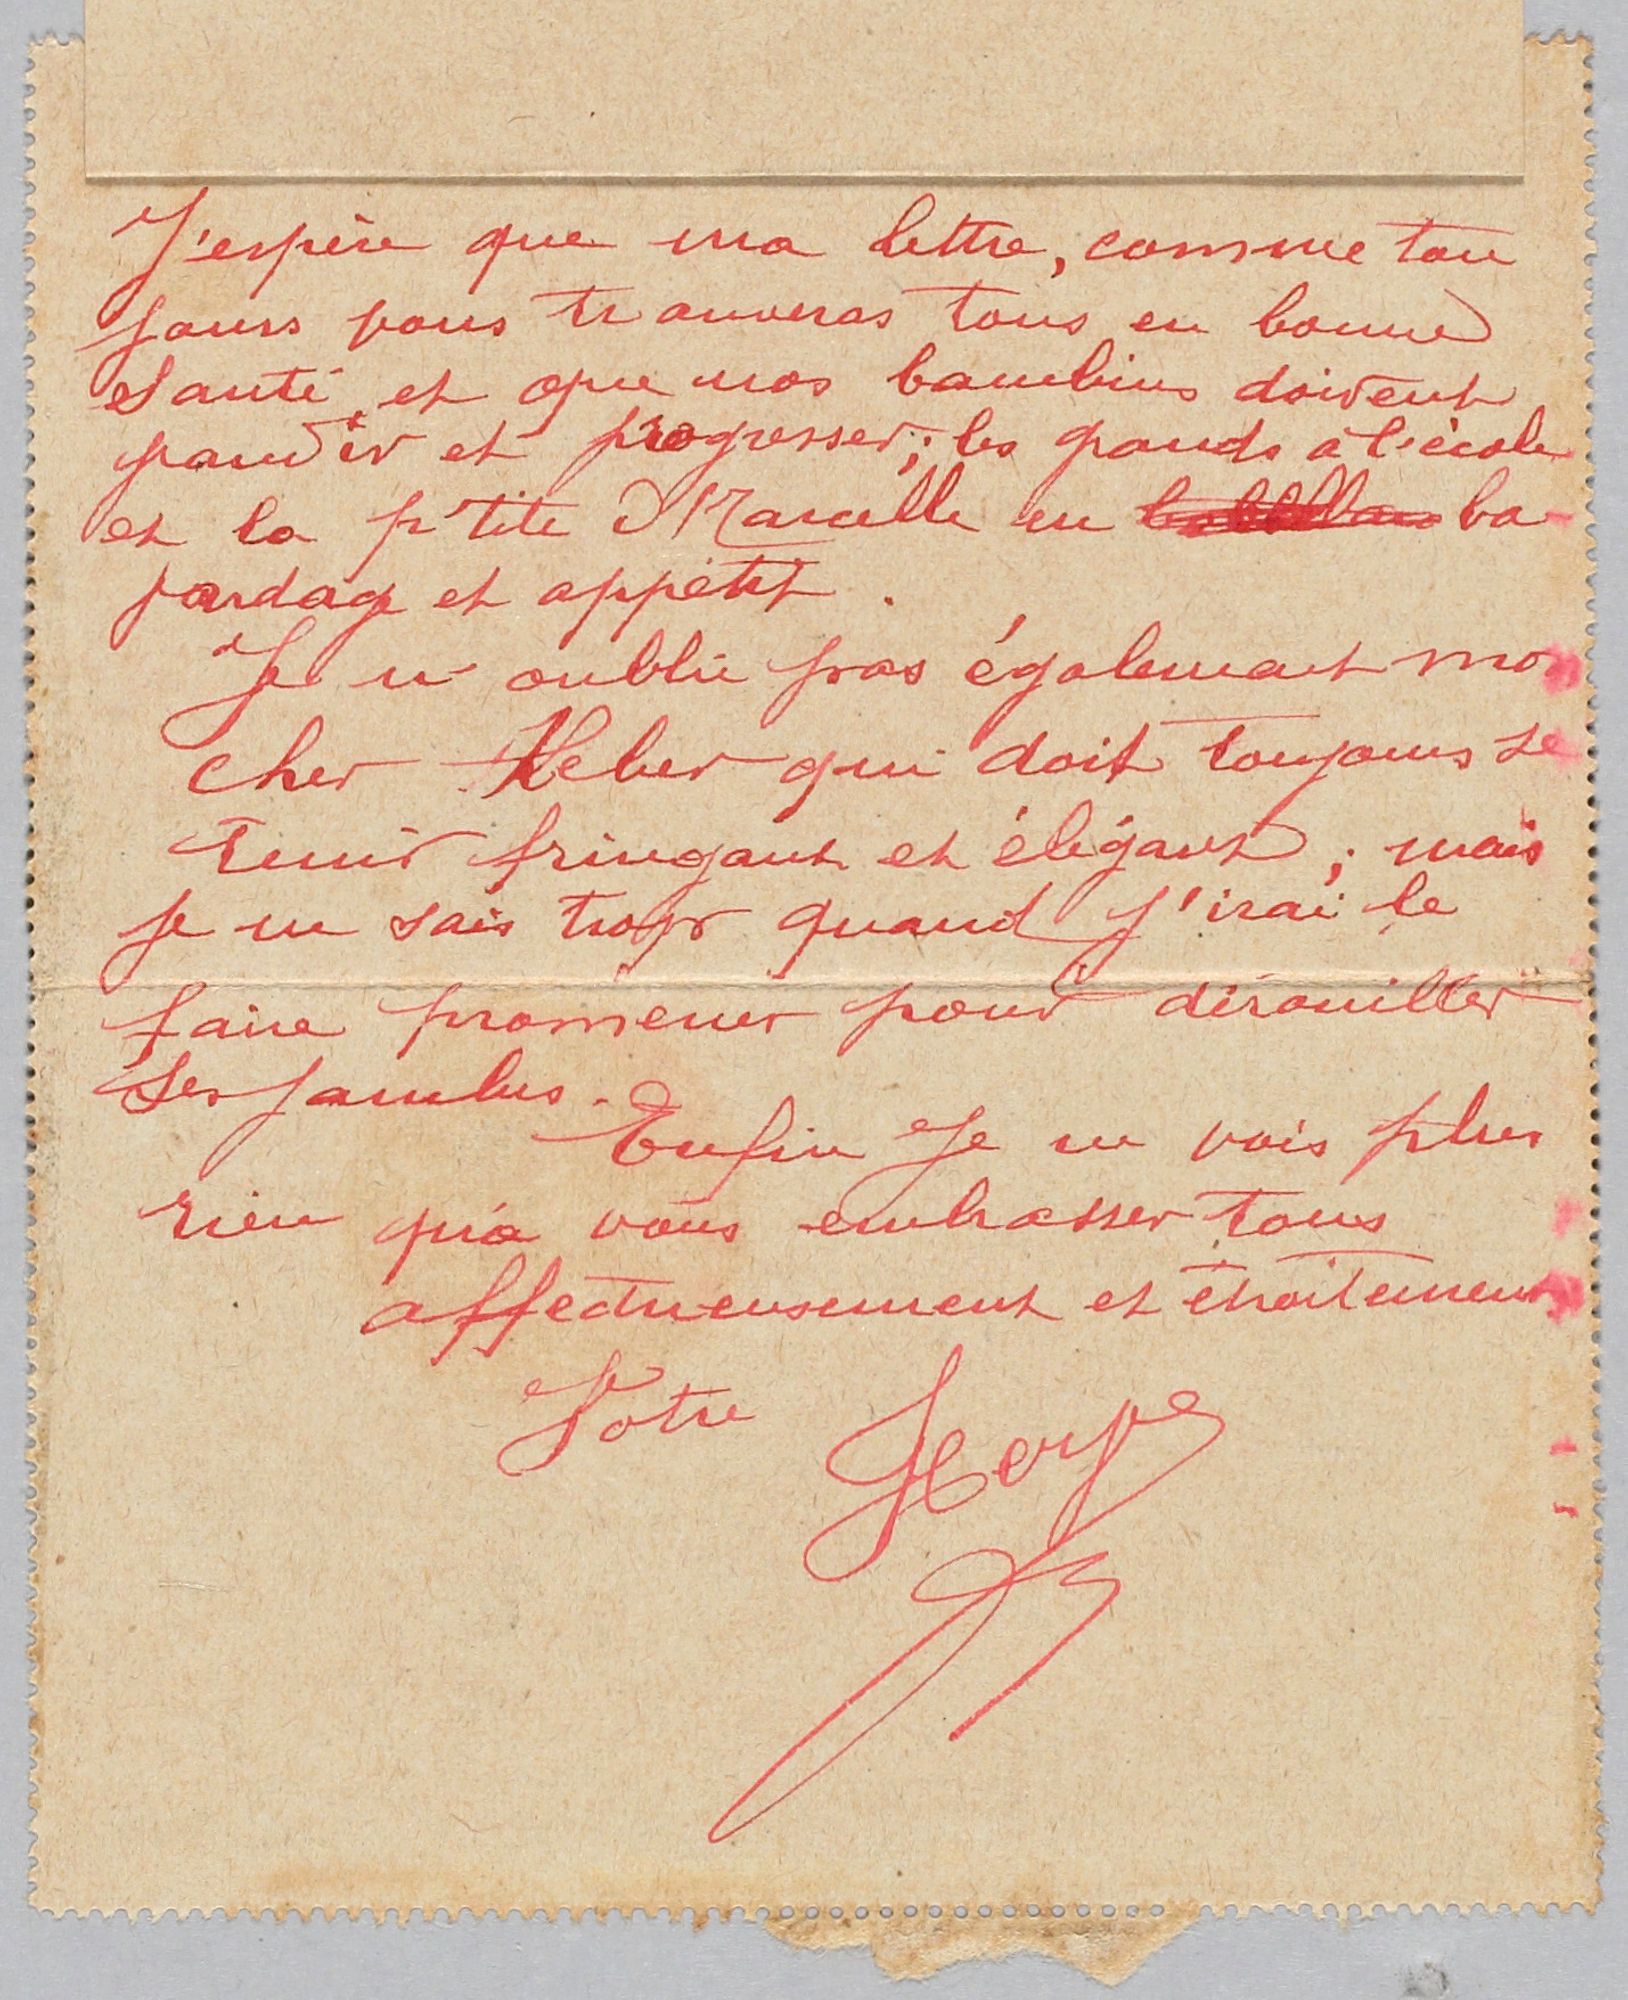 J'espère que ma lettre, comme tou
jours vous trouveras tous en bonne
santé, et que nos bambins doivent
grandir et progresser; les grands à l'école
et la p'tite Marcelle en ba-
vardage et appétit.
Je n'oublie pas également mon
cher Kleber qui doit toujours se
tenir fringant et élégant; mais
je ne sais trop quand j'irai le
faire promener pour dérouiller
ses jambes.
Enfin je ne vois plus
rien qu'à vous embrasser tous
affectueusement et étroitement
Votre